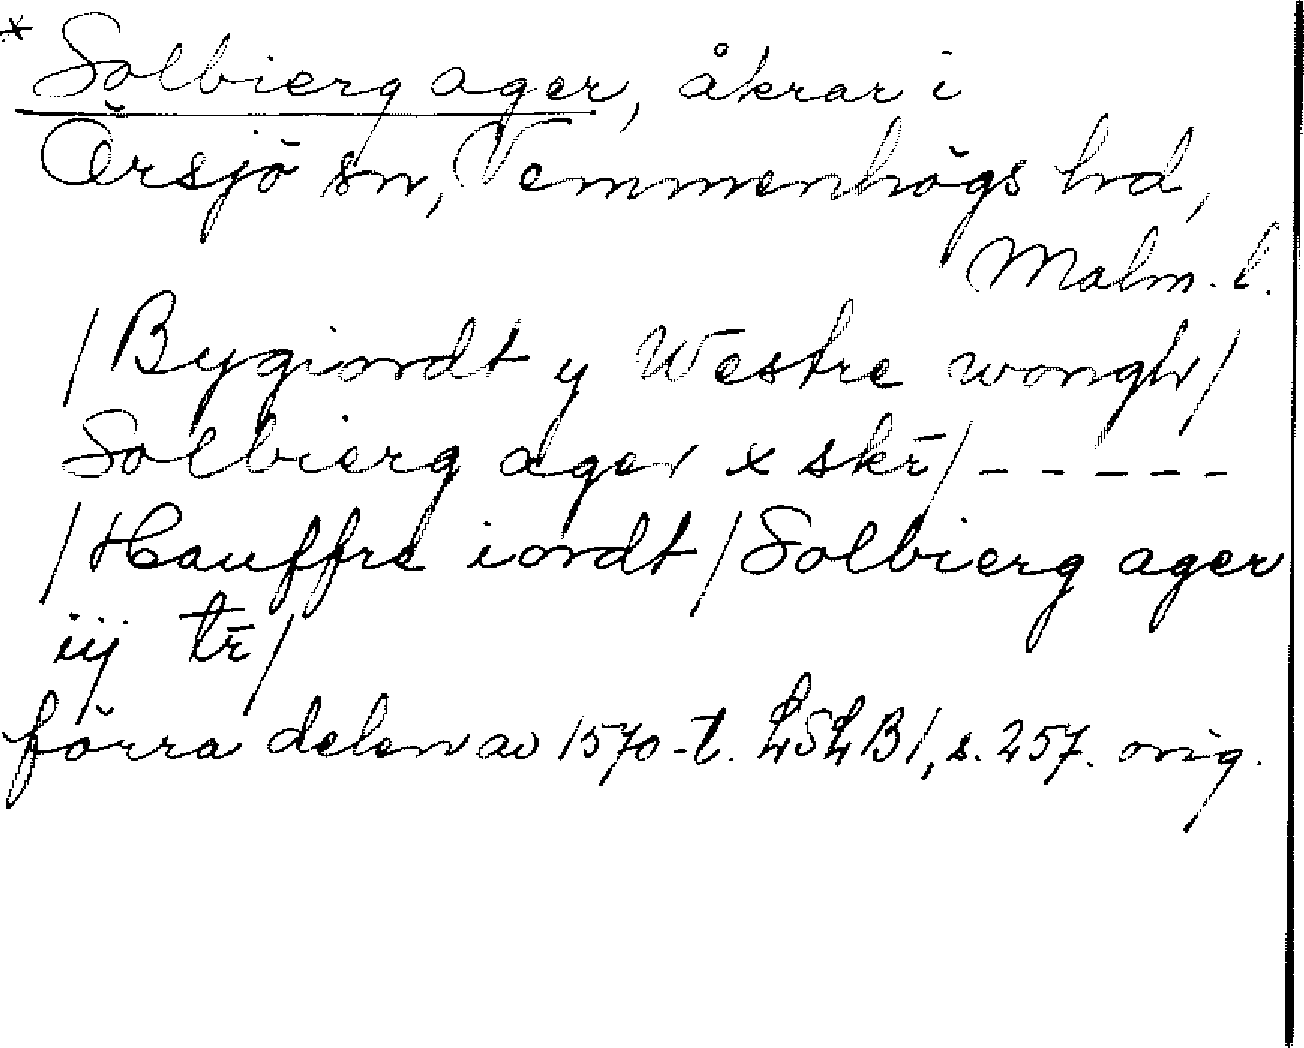 * Solbierg ager, åkrar i
Örsjö sn, Vemmenhögs hd,
Malm. l.
/Bygiordt y Westre wongh/
Solbierg ager x skr̄/ - - - - -
/Hauffre iordt/Solbierg ager
iij tr̄/
förra delen av 1570-t. LSLB1, s. 257. orig.